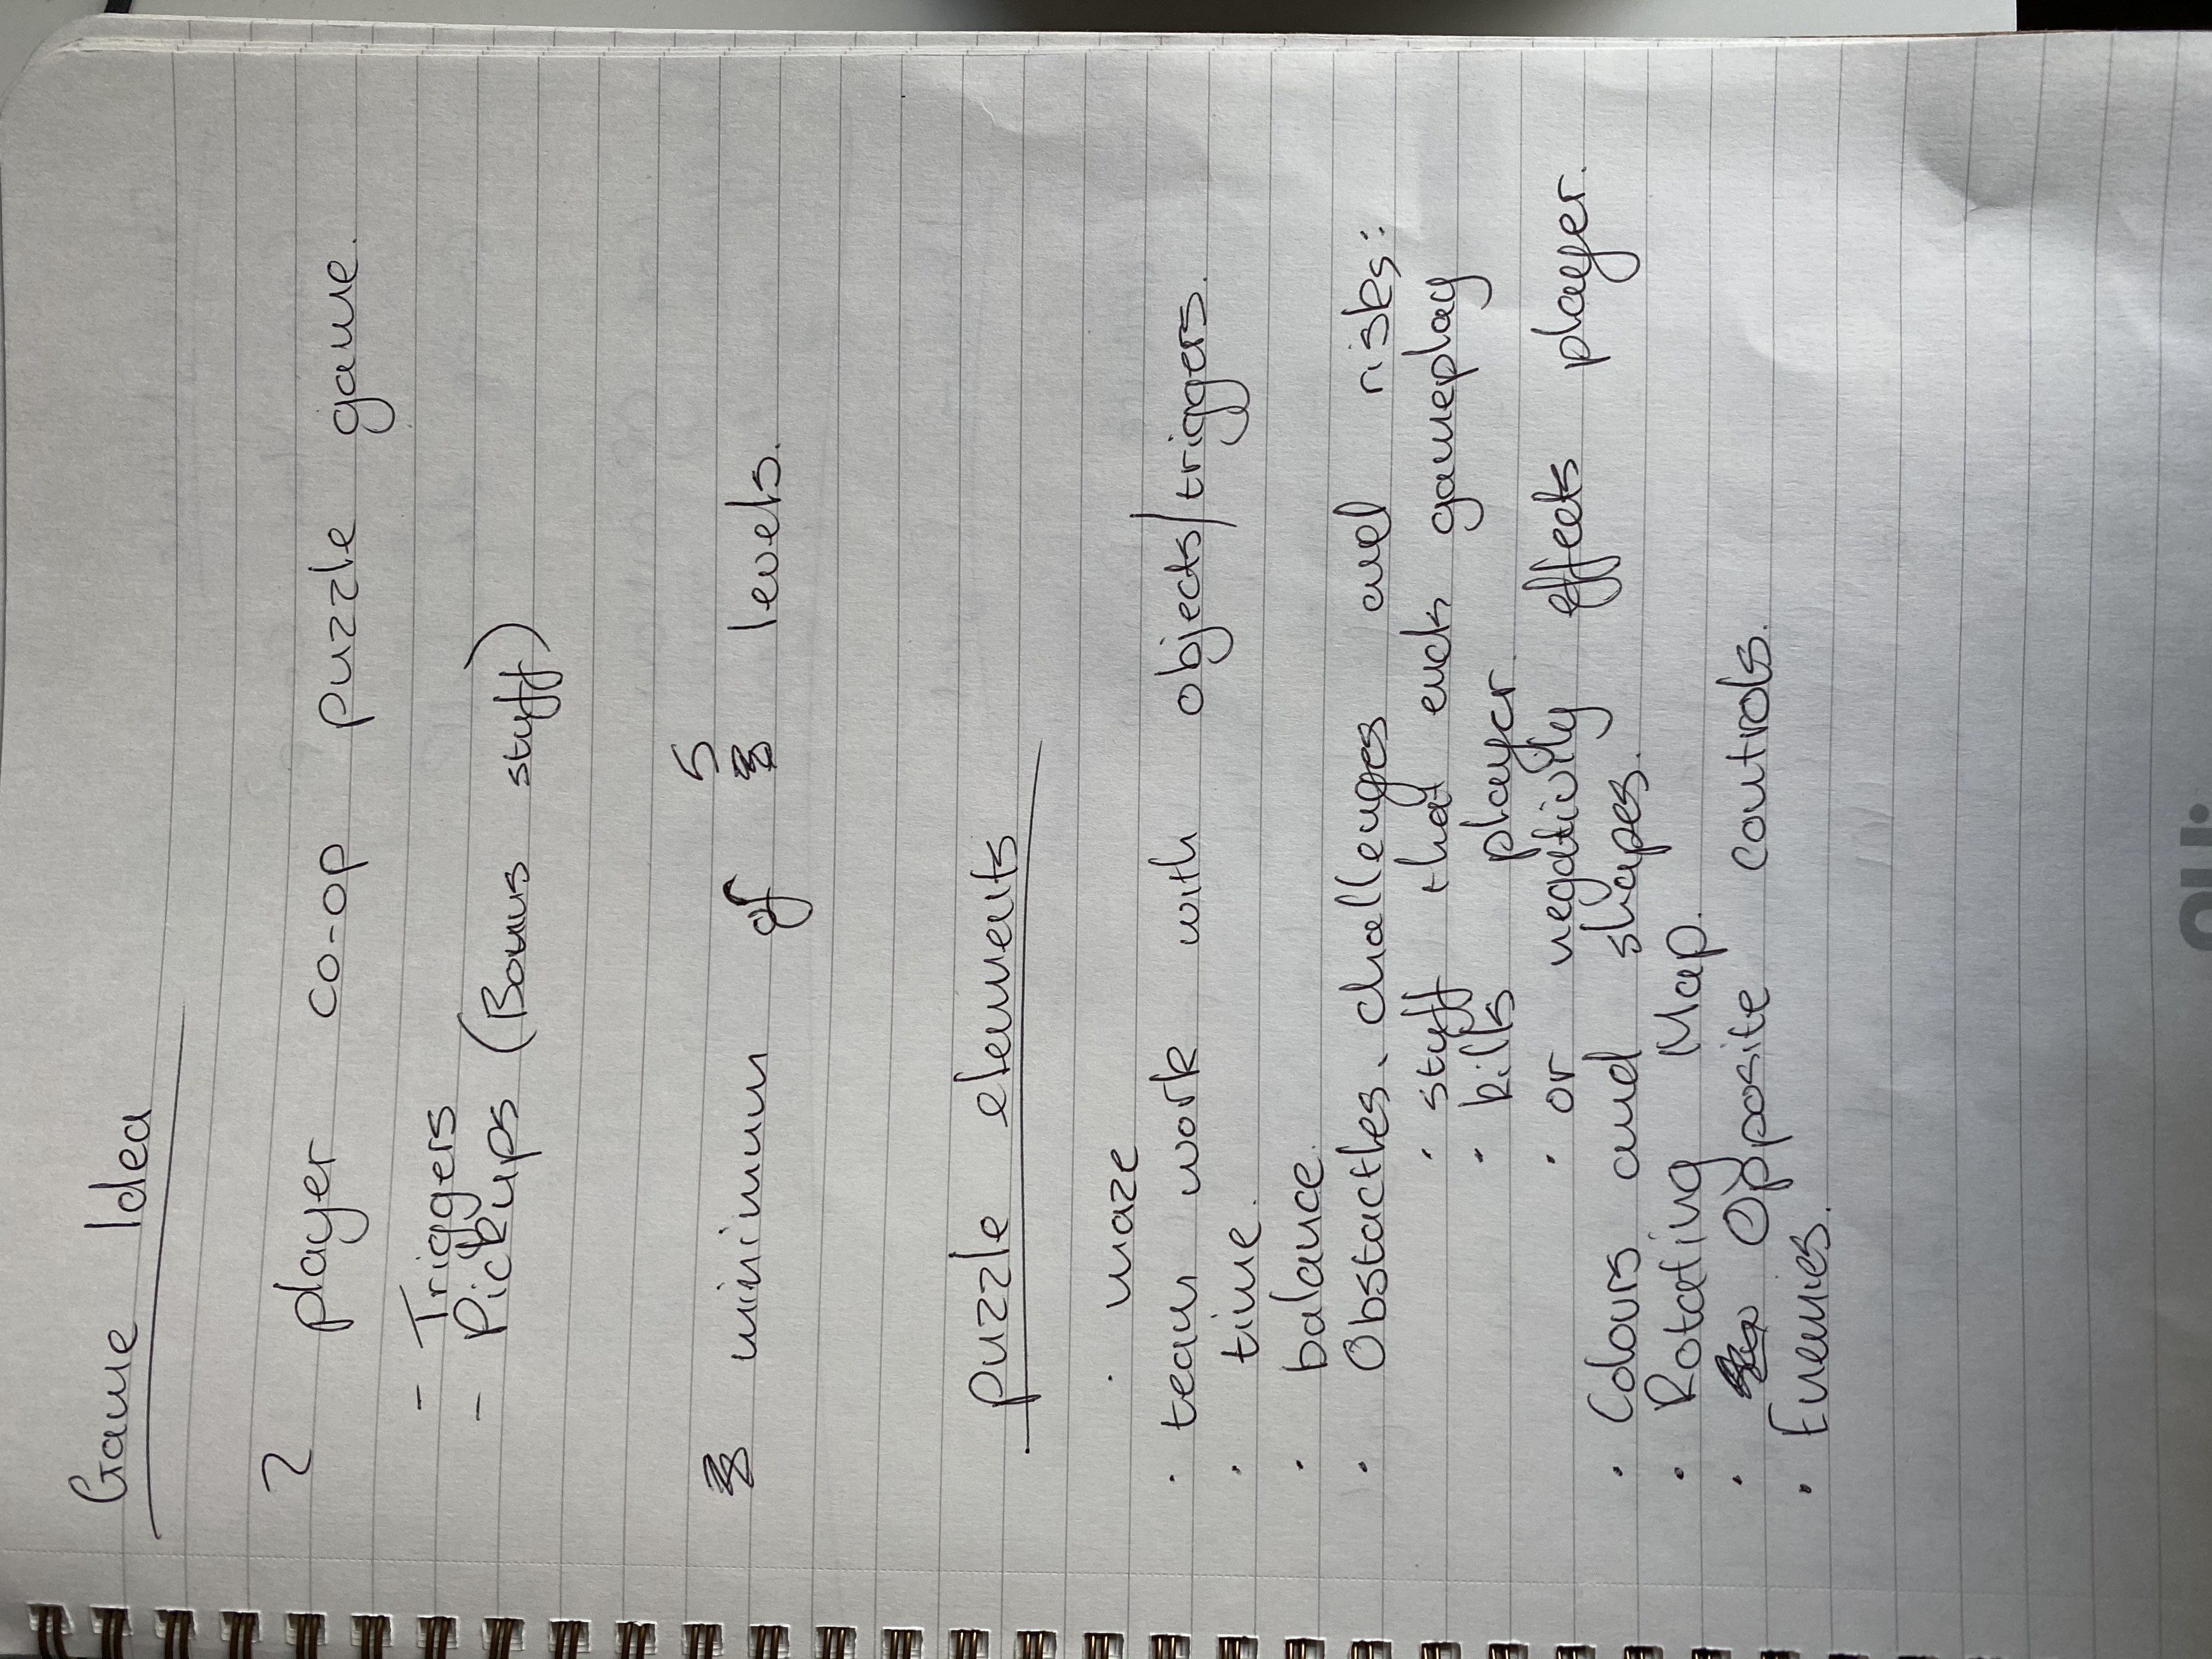 Game Idea
2 player co-op puzzle game.
- Triggers
- Pickups (Bonus stuff)
minimum of 5 levels.
puzzle elements
· maze
· team work with objects/triggers.
· time.
· balance.
· Obstactles, challenges and risks:
· stuff that ends gameplay
· kills player.
· or negativily effects player.
· Colours and shapes.
· Rotating Map.
· Opposite controls.
· Enemies.